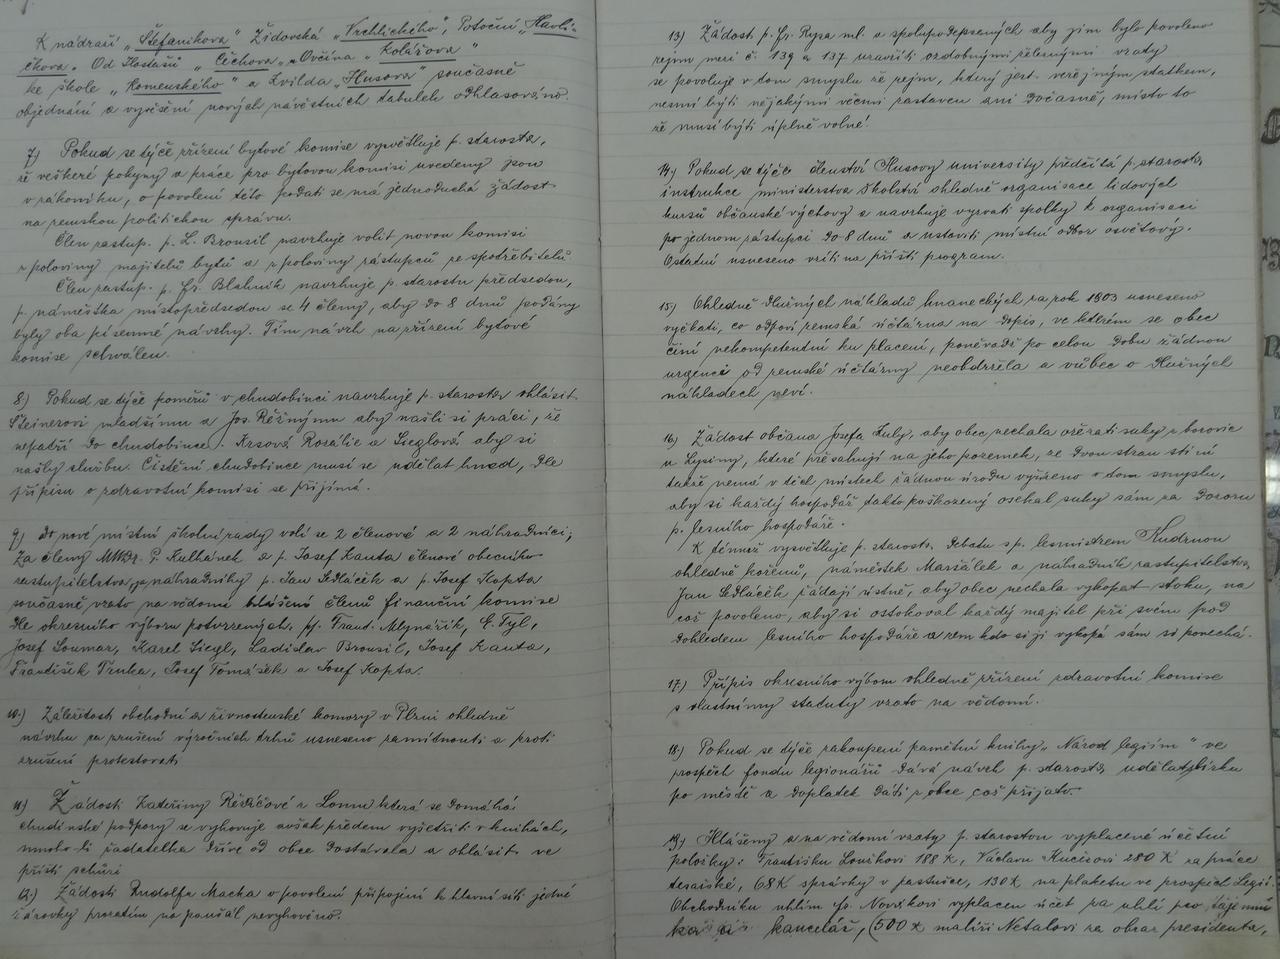 K nádraží „Štefanikova" Židovská „Vrchlického", Potoční „Havlí-
čkova„ Od Hostašů „Čechova„ „Ovčína „Kolářova"
ke škole „Komenského" a Zvilda „Husova" současně
objednání a vyvěšení nových návěstních tabulek odhlasováno.
7) Pokud se týče zřízení bytové komise vysvětluje p. starosta,
že veškeré pokyny a práce pro bytovou komisi uvedeny jsou
v zákoníku, o povolení této podati se má jednoduchá žádost
na zemskou politickou správu.
Člen zastup. p. L. Brousil navrhuje volit novou komisi
z poloviny majitelů bytů a z poloviny zástupců ze spotřebitelů
Člen zastup. p. Fr. Blahník navrhuje p. starostu předsedou,
p. náměstka místopředsedou se 4 členy, aby do 8 dnů podány
byly oba písemné návrhy. Tím návrh na zřízení bytové
komise schválen.
8) Pokud se týče poměrů v chudobinci navrhuje p. starosta ohlásit
Šteinerovi mladšímu a Jos. Řežnýmu aby našli si práci, že
nepatří do chudobince. Krsová Rozálie a Sieglová aby si
našly službu. Čistění chudobince musí se udělat hned, dle
přípisu o zdravotní komisi se přijímá.
9) Do nové místní školní rady volí se 2 členové a 2 náhradníci;
Za členy MUDr. P. Kulhánek a p. Josef Kauta členové obecního
zastupitelstva, za náhradníky p. Jan Sedláček a p. Josef Kopta
současně vzato na vědomí hlášení členů finanční komise
dle okresního výboru potvrzených, pp. Frant. Mlynařík, E. Tyl,
Josef Soumar, Karel Siegl, Ladislav Brousil, Josef Kauta,
František Trnka, Josef Tomášek a Josef Kopta.
10) Záležitost obchodní a živnostenské komory v Plzni ohledně
návrhu za zrušení výročních trhů usneseno zamítnouti a proti
zrušení protestovati
11) Žádosti Kateřiny Řědičové z Loun která se domáhá
chudinské podpory se vyhovuje avšak předem vyšetřiti v knihách,
mnoho-li žadatelka dříve od obce dostávala a ohlásit ve
příští schůzi
12) Žádosti Rudolfa Macka o povolení připojení k hlavní síti jedné
žárovky prozatím na paušál nevyhověno.
13) Žádosti p. Fr. Rysa ml. a spolupodepsaných aby jim bylo povoleno
zejm mezi č. 139 a 137 uzavříti ozdobnými železnými vraty
se povoluje v tom smyslu že zejm, který jest veřejným statkem,
nesmí býti nějakými věcmi zastaven ani dočasně, místo to
že musí býti úplně volné.
14) Pokud se týče členství Husovy university předčítá p. starosta
instrukce ministerstva školství ohledně organisace lidových
kursů občanské výchovy a navrhuje vyzvati spolky k organisaci
po jednom zástupci do 8 dnů a ustaviti místní odbor osvětový.
Ostatní usneseno vzíti na příští program.
15) Ohledně dlužných náhradů knaneckých za rok 1903 usneseno
vyčkati, co odpoví zemská účtárna na dopis, ve kterém se obec
činí nekompetentní ku placení, poněvadž po celou dobu žádnou
urgenci od zemské účtárny neobdržela a vůbec o dlužných
náhradech neví.
16) Žádost občana Josefa Huly, aby obec nechala ořezati suky z borovic
u Lysiny, které přesahují na jeho pozemek, ze dvou stran stíní
takže nemá v těch místech řádnou úrodu vyřízeno v tom smyslu,
aby si každý hospodář takto poškozený osekal suky sám za dozoru
p. lesního hospodáře.
K témuž vysvětluje p. starosta debatu s p. lesmistrem Kudrnou
ohledně kořenů, náměstek Maršálek a náhradník zastupitelstva
Jan Sedláček žádají ústně, aby obec nechala vykopat stoku, na
což povoleno, aby si ostokoval každý majitel při svém pod
dohledem lesního hospodáře a zem kdo si ji vykopá sám si ponechá.
17) Přípis okresního výboru ohledně zřízení zdravotní komise
s vlastnímy statuty vzato na vědomí.
18) Pokud se týče zakoupení pamětní knihy „Národ legiím" ve
prospěch fondu legionářů dává návrh p. starosta udělat sbírku
po městě a doplatek dáti z obce což přijato.
19) Hlášeny a na vědomí vzaty p. starostou vyplacené účetní
položky: Františku Loukovi 188 K, Václavu Kncisovi 280 K za práce
tesařské, 68 K správky v pastušce, 130 K na plaketu ve prospěch Legií.
Obchodníku uhlím Fr. Novákovi vyplacen účet za uhlí pro tajemní
ka a kancelář, (500 K malíři Netalovi za obraz presidenta,